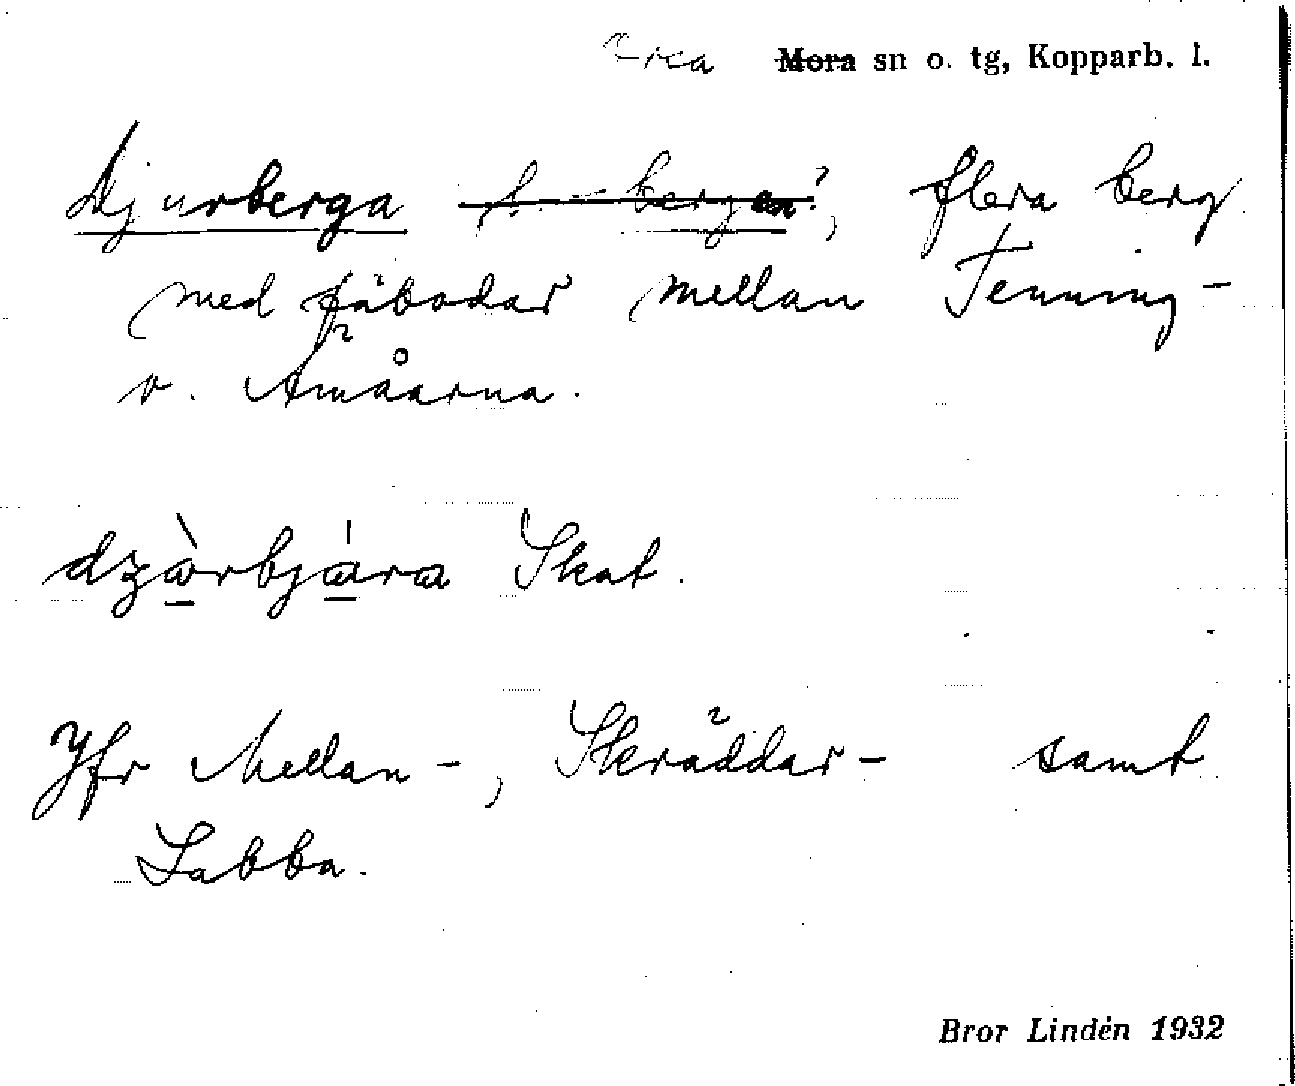 Orsa Mora sn o. tg, Kopparb. l.
Djurberga f. -bergen?, flera berg
med fäbodar mellan Tenning-
o. Ämåarna.
dzàrbjára Skat.
Jfr Mellan-, Skräddar- samt
Labba.
Bror Lindén 1932